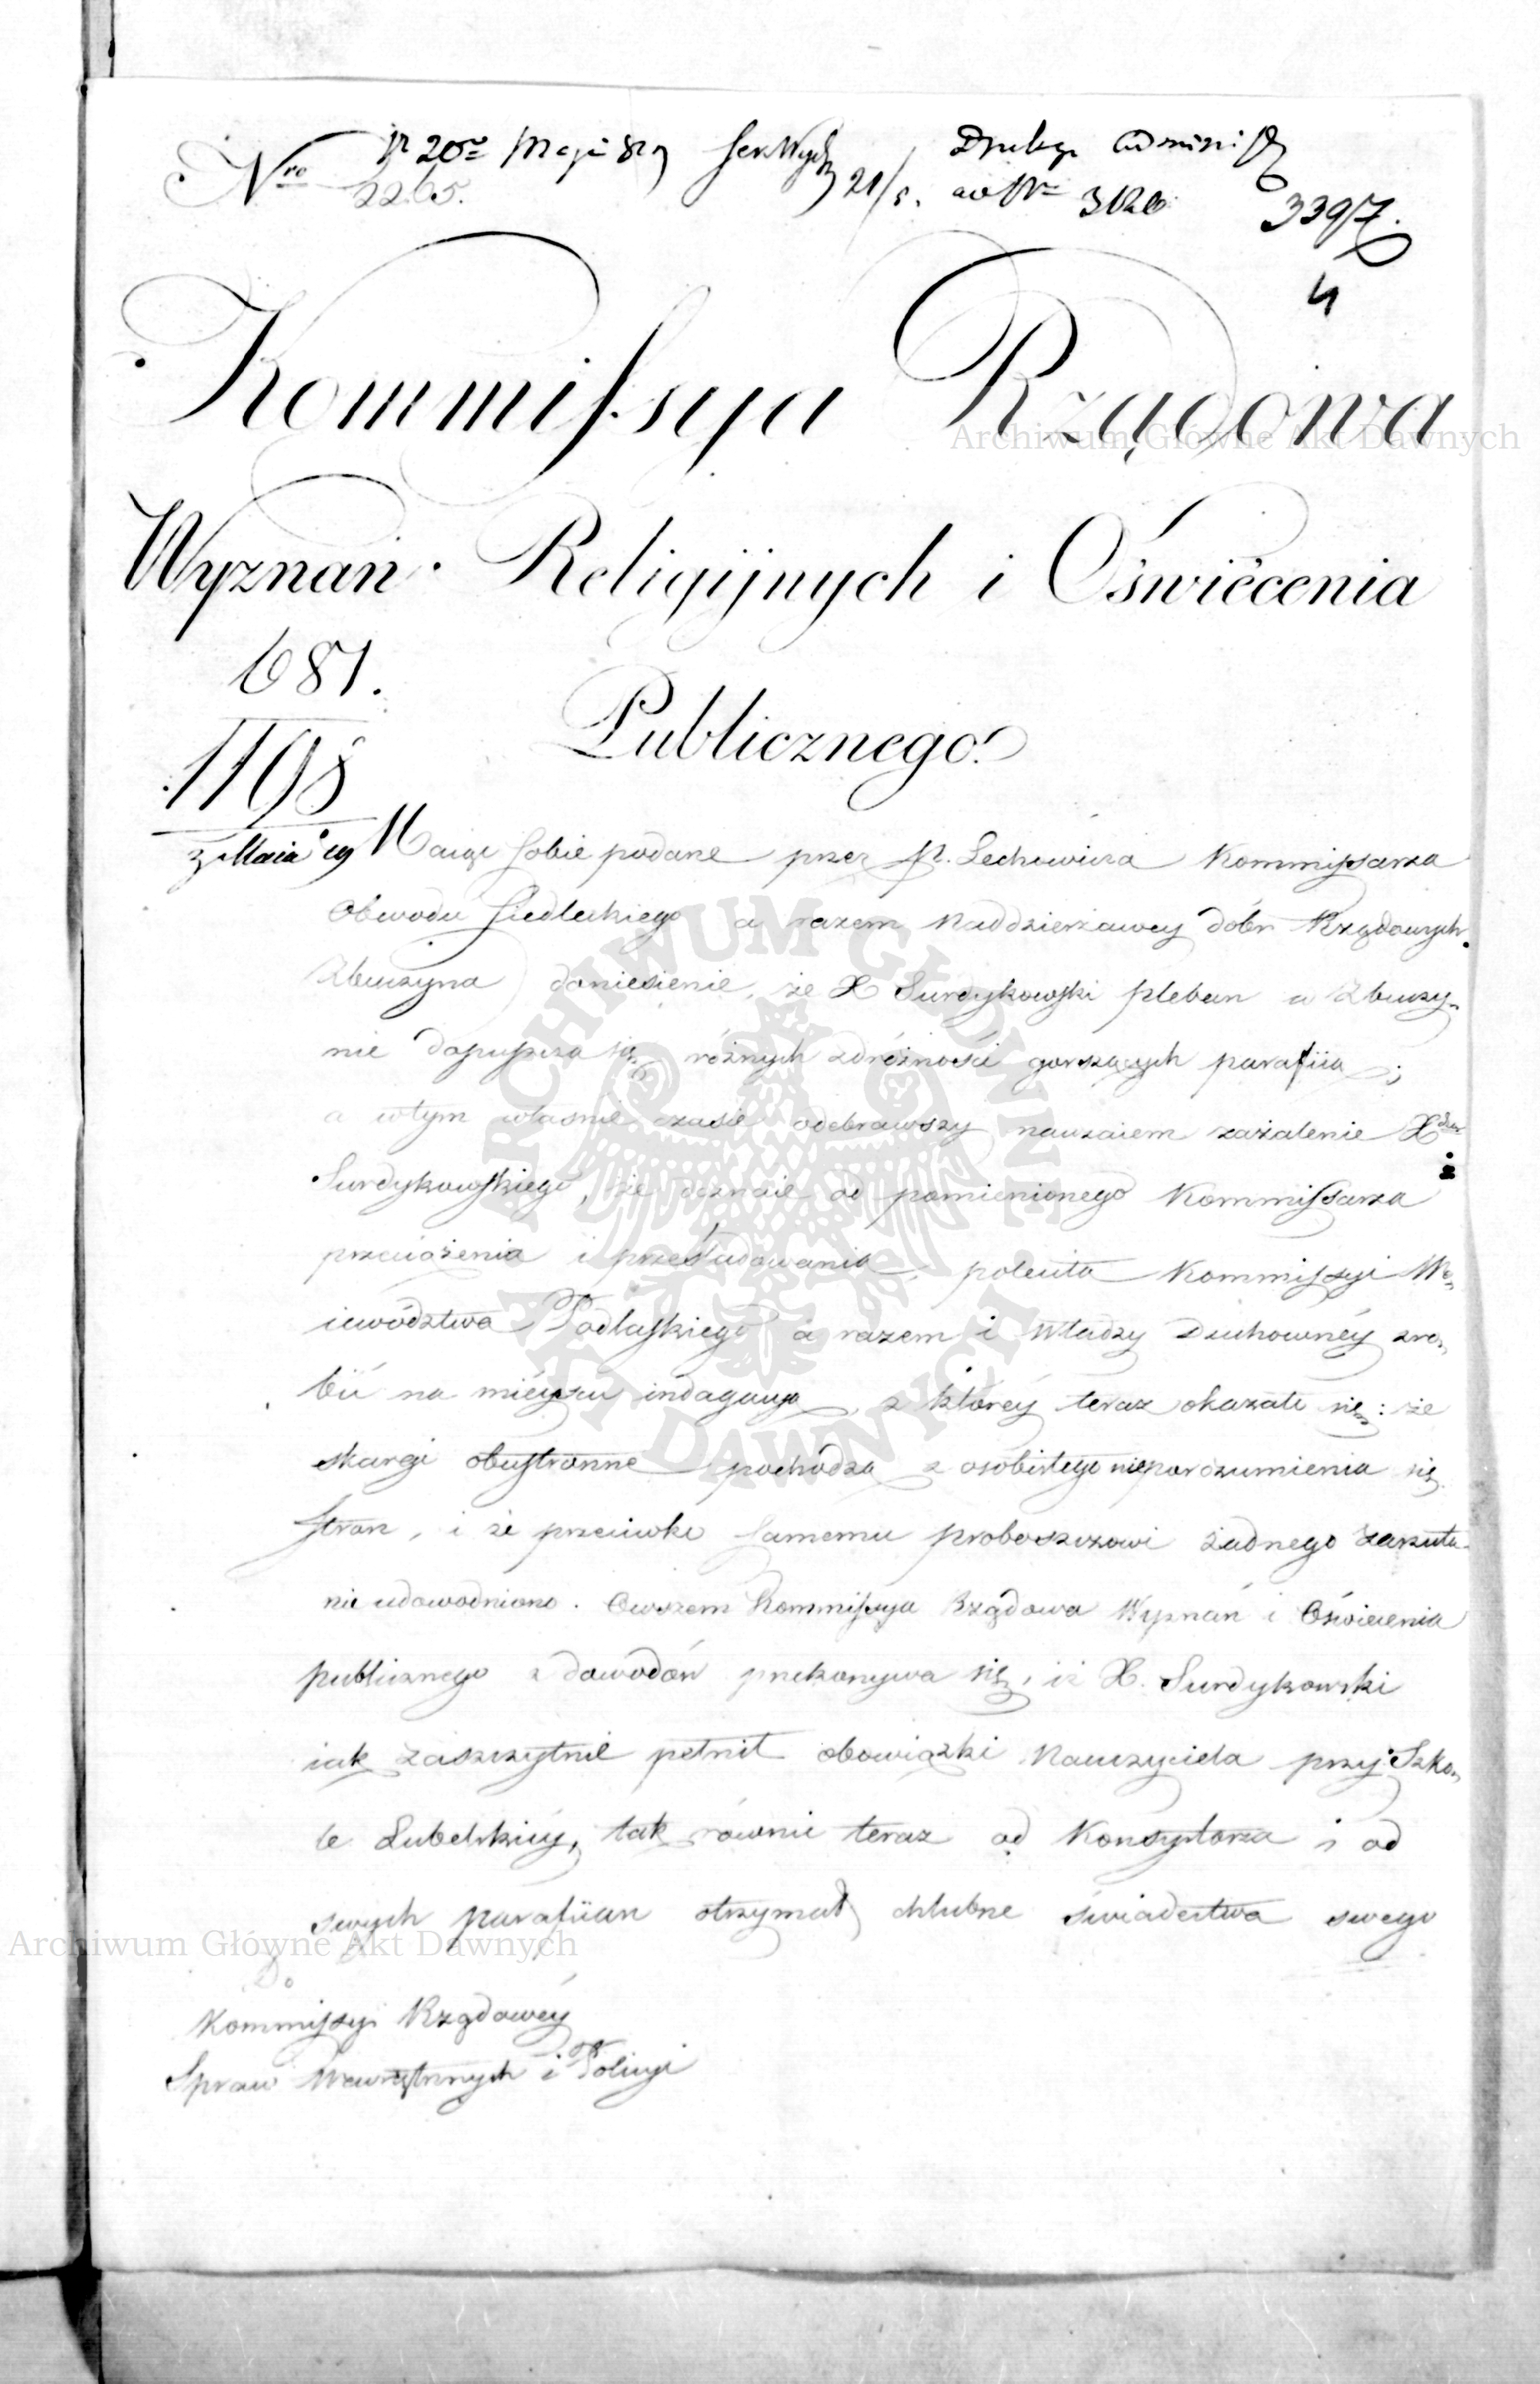 Nro 2265. 20 Maja 819 21/5. ad Nr 3120 3397.
4
Kommissyia Rządowa
Wyznań Religijnych i Oświécenia
681.
Publicznego.
1198
z Maia
Maiąc sobie podane przez P. Lechowicza Kommissarza
Obwodu Siedleckiego a razem Naddzierżawcy dóbr Rządowych
Zbuczyna doniesienie, że X Surdykowski pleban w Zbuczy-
nie dopuszcza się różnych zdrożności gorszących parafiia;
a w tym własnie czasie odebrawszy nawzaiem zażalenie Xdza
Surdykowskiego, że doznaie od pomienionego Kommissarza
przeciążenia i prześladowania, poleciła Kommissyi Wo-
iewództwa Podlaskiego a razem i Władzy Duchownéy zro-
bić na mieyscu indagacyą, z któréy teraz okazało się: że
skargi obustronne pochodzą z osobistego nieporozumienia się
stron, i że przeciwko samemu proboszczowi żadnego zarzutu
nie udowodniono. Owszem Kommissyia Rządowa Wyznań i Oświecenia
publicznego z dowodów przekonywa się, iż X. Surdykowski
iak zaszczytnie pełnił obowiązki Nauczyciela przy Szko-
le Lubelskiéy, tak równie teraz od Konsystorza i od
swych parafiian otrzymał chlubne świadectwa swego
Archiwum Główne Akt Dawnych
Do
Kommissyi Rządowéy
Spraw Wewnętrznych i Policyi